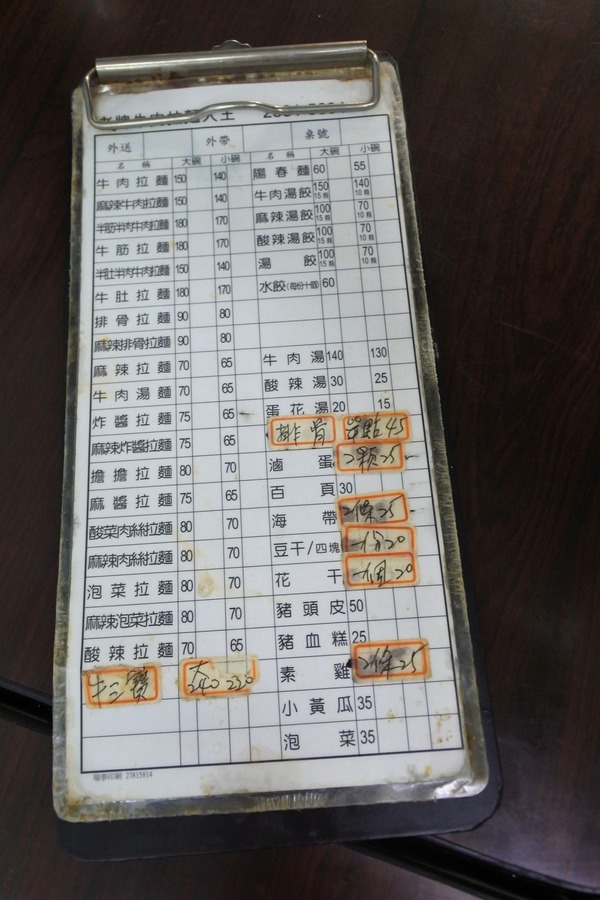 外送 外帶 桌號
名稱 大碗 小碗 名稱 大碗 小碗
牛肉拉麵 150 140
麻辣牛肉拉麵 150 140
半筋半肉牛肉拉麵 180 170
牛筋拉麵 180 170
半肚半肉牛肉拉麵 150 140
牛肚拉麵 180 170
排骨拉麵 90 80
麻辣排骨拉麵 90 80
麻辣拉麵 70 65
牛肉湯麵 70 65
炸醬拉麵 75 65
麻辣炸醬拉麵 75 65
擔擔拉麵 80 70
麻醬拉麵 75 65
酸菜肉絲拉麵 80 70
麻辣肉絲拉麵 80 70
泡菜拉麵 80 70
麻辣泡菜拉麵 80 70
酸辣拉麵 70 65
牛三寶 大240 230
陽春麵 60 55
牛肉湯餃 150 15顆 140 10顆
麻辣湯餃 100 15顆 70 10顆
酸辣湯餃 100 15顆 70 10顆
湯餃 100 15顆 70 10顆
水餃(每份十個) 60
牛肉湯 140 130
酸辣湯 30 25
蛋花湯 20 15
排骨 單點45
滷蛋 2顆25
百頁 30
海帶 2條25
豆干/四塊 一份20
花干 一個20
豬頭皮 50
豬血糕 25
素雞 2條25
小黃瓜 35
泡菜 35
27815814